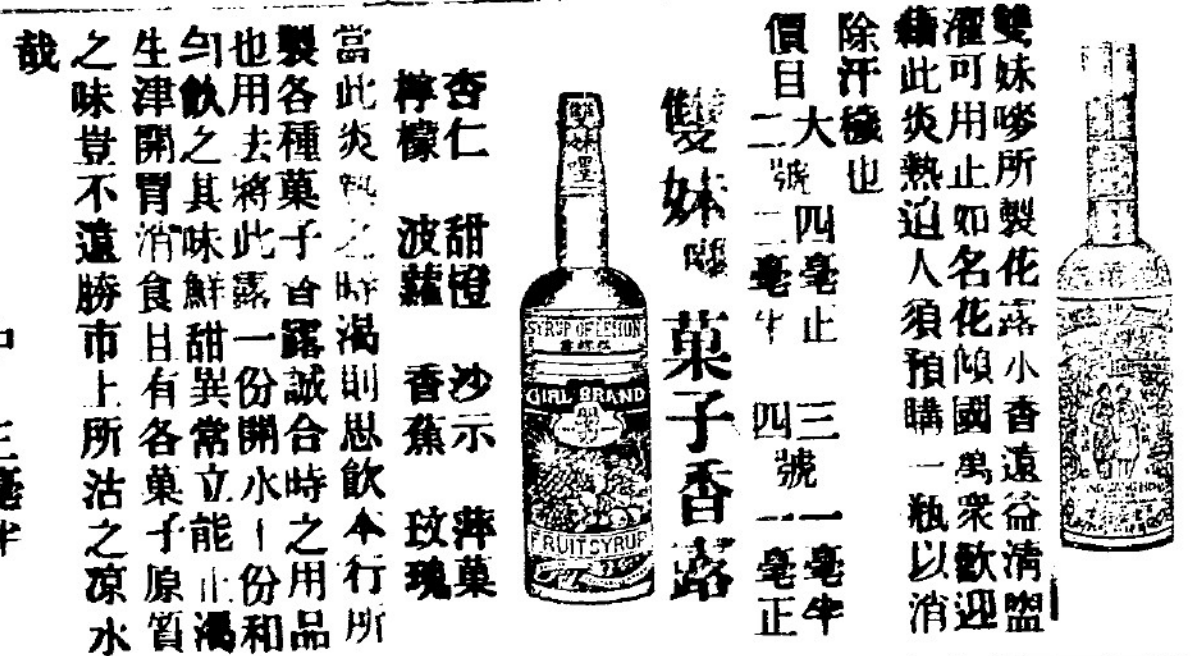 雙妹嘜所製花露小香遠益清盥
濯可用止如名花傾國萬衆歡迎
藉此炎熱迫人須預購一瓶以消
除汗穢也
價目
大號 四毫止
二號 二毫半
三號 一毫半
四號 一毫正
雙妹嘜菓子香露
雙妹嘜
SYRUP OF LEMON
GIRL BRAND
FRUIT SYRUP
杏仁 甜橙 沙示 蘋菓
檸檬 波蘿 香蕉 玫瑰
當此炎熱之時渴則思飲本行所
製各種菓子香露誠合時之用品
也用去將此露一份開水十份和
勻飲之其味鮮甜異常立能止渴
生津開胃消食且有各菓子原質
之味豈不遠勝市上所沽之凉水
哉
三毫半